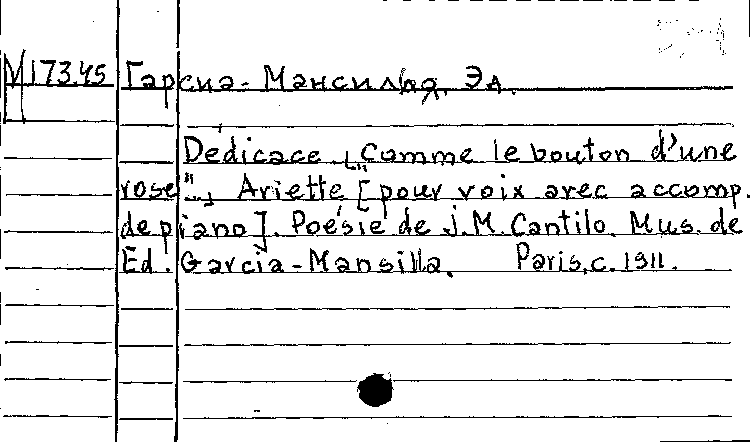 М173.45 Гарсиа-Мансилья, Эд.
Dedicace „Comme le bouton d'une
rose"... Ariette [pour voix avec accomp.
de piano]. Poésie de J.M. Cantilo. Mus. de
Ed. Garcia-Mansilla. Paris, c. 1911.